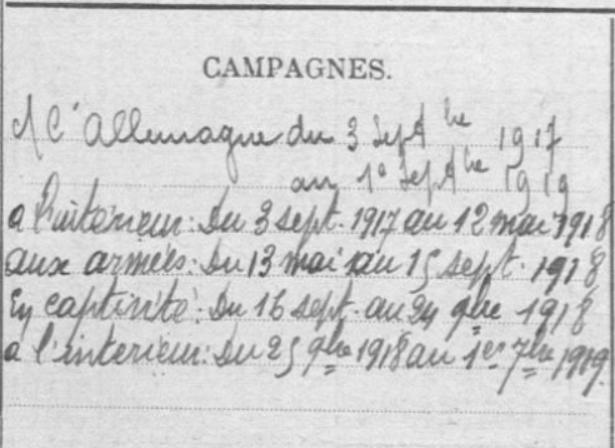 CAMPAGNES.
Ctre Allemagne du 3 Sept bre 1917
au 1er Sept bre 1919
a l'intérieur: Du 3 sept. 1917 au 12 mai 1918
aux armées: Du 13 mai au 15 sept. 1918
En captivité: Du 16 sept. au 24 9bre 1918
a l'interieur: Du 25 9bre 1918 au 1er 7bre 1919.